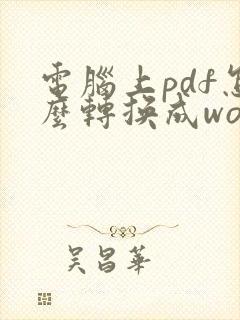 電腦上pdf怎
麼轉換成wo
吳昌華